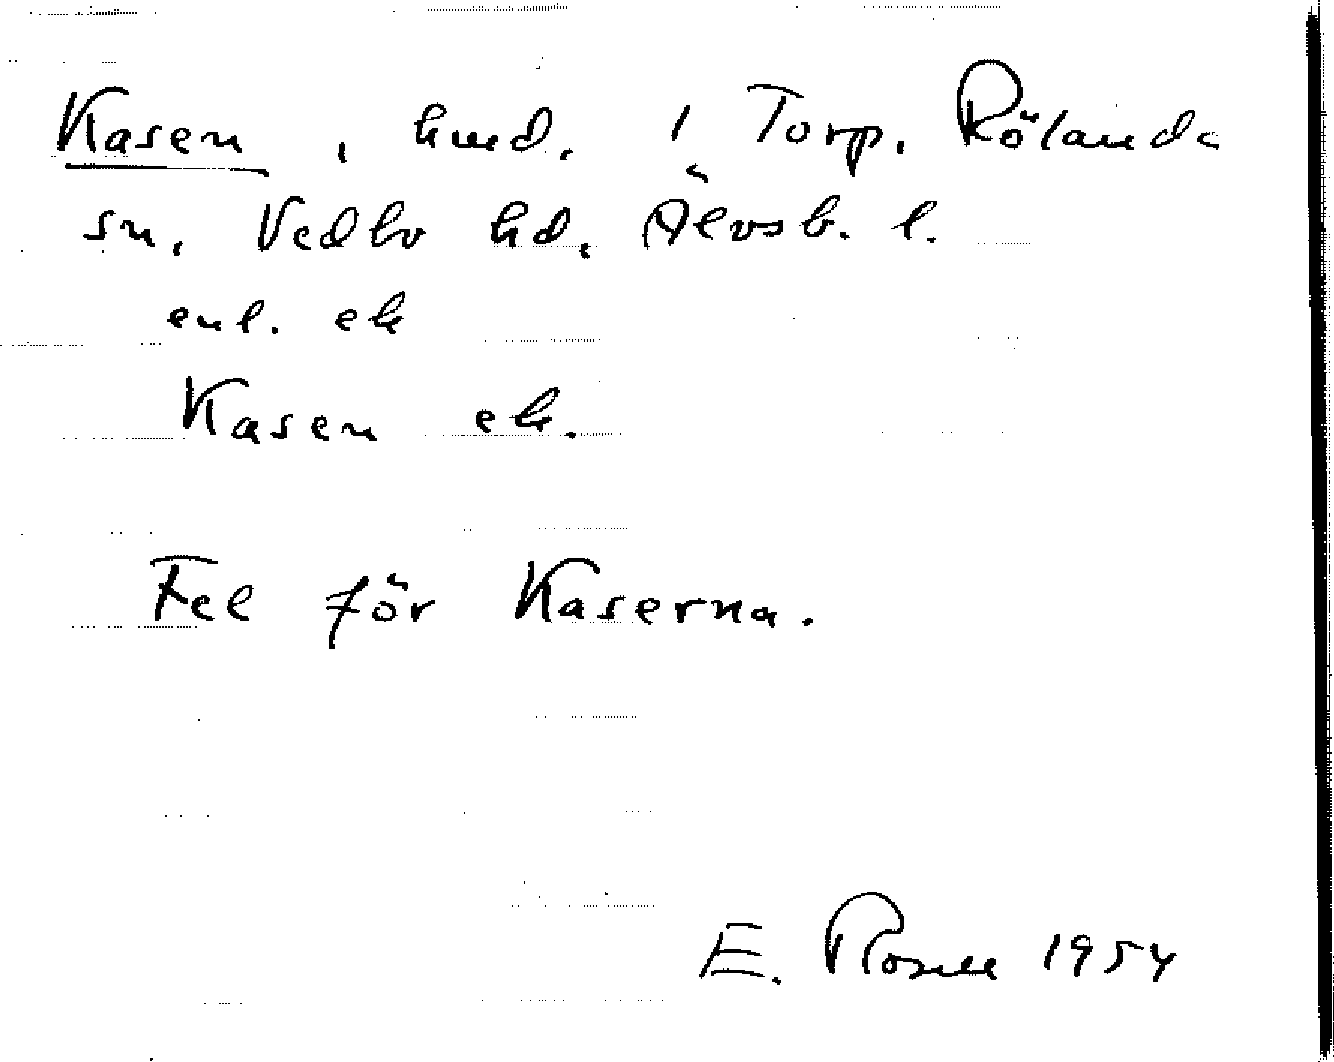 Kasen, hmd. 1 Torp, Rölanda
sn, Vedbo hd. Älvsb. l.
enl. ek
Kasen ek.
Fel för Kaserna.
E. Rosell 1954